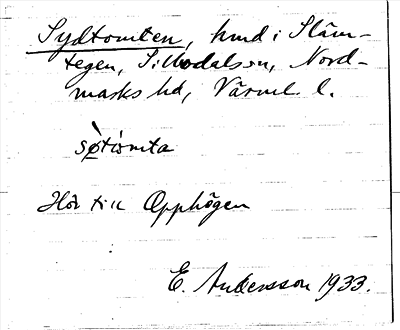 Sydtomten, hmd i Släm-
tegen, Sillbodals sn, Nord-
marks hd, Värml. l.
sø̀tòmta
Hör till Opphögen
E. Andersson 1933.